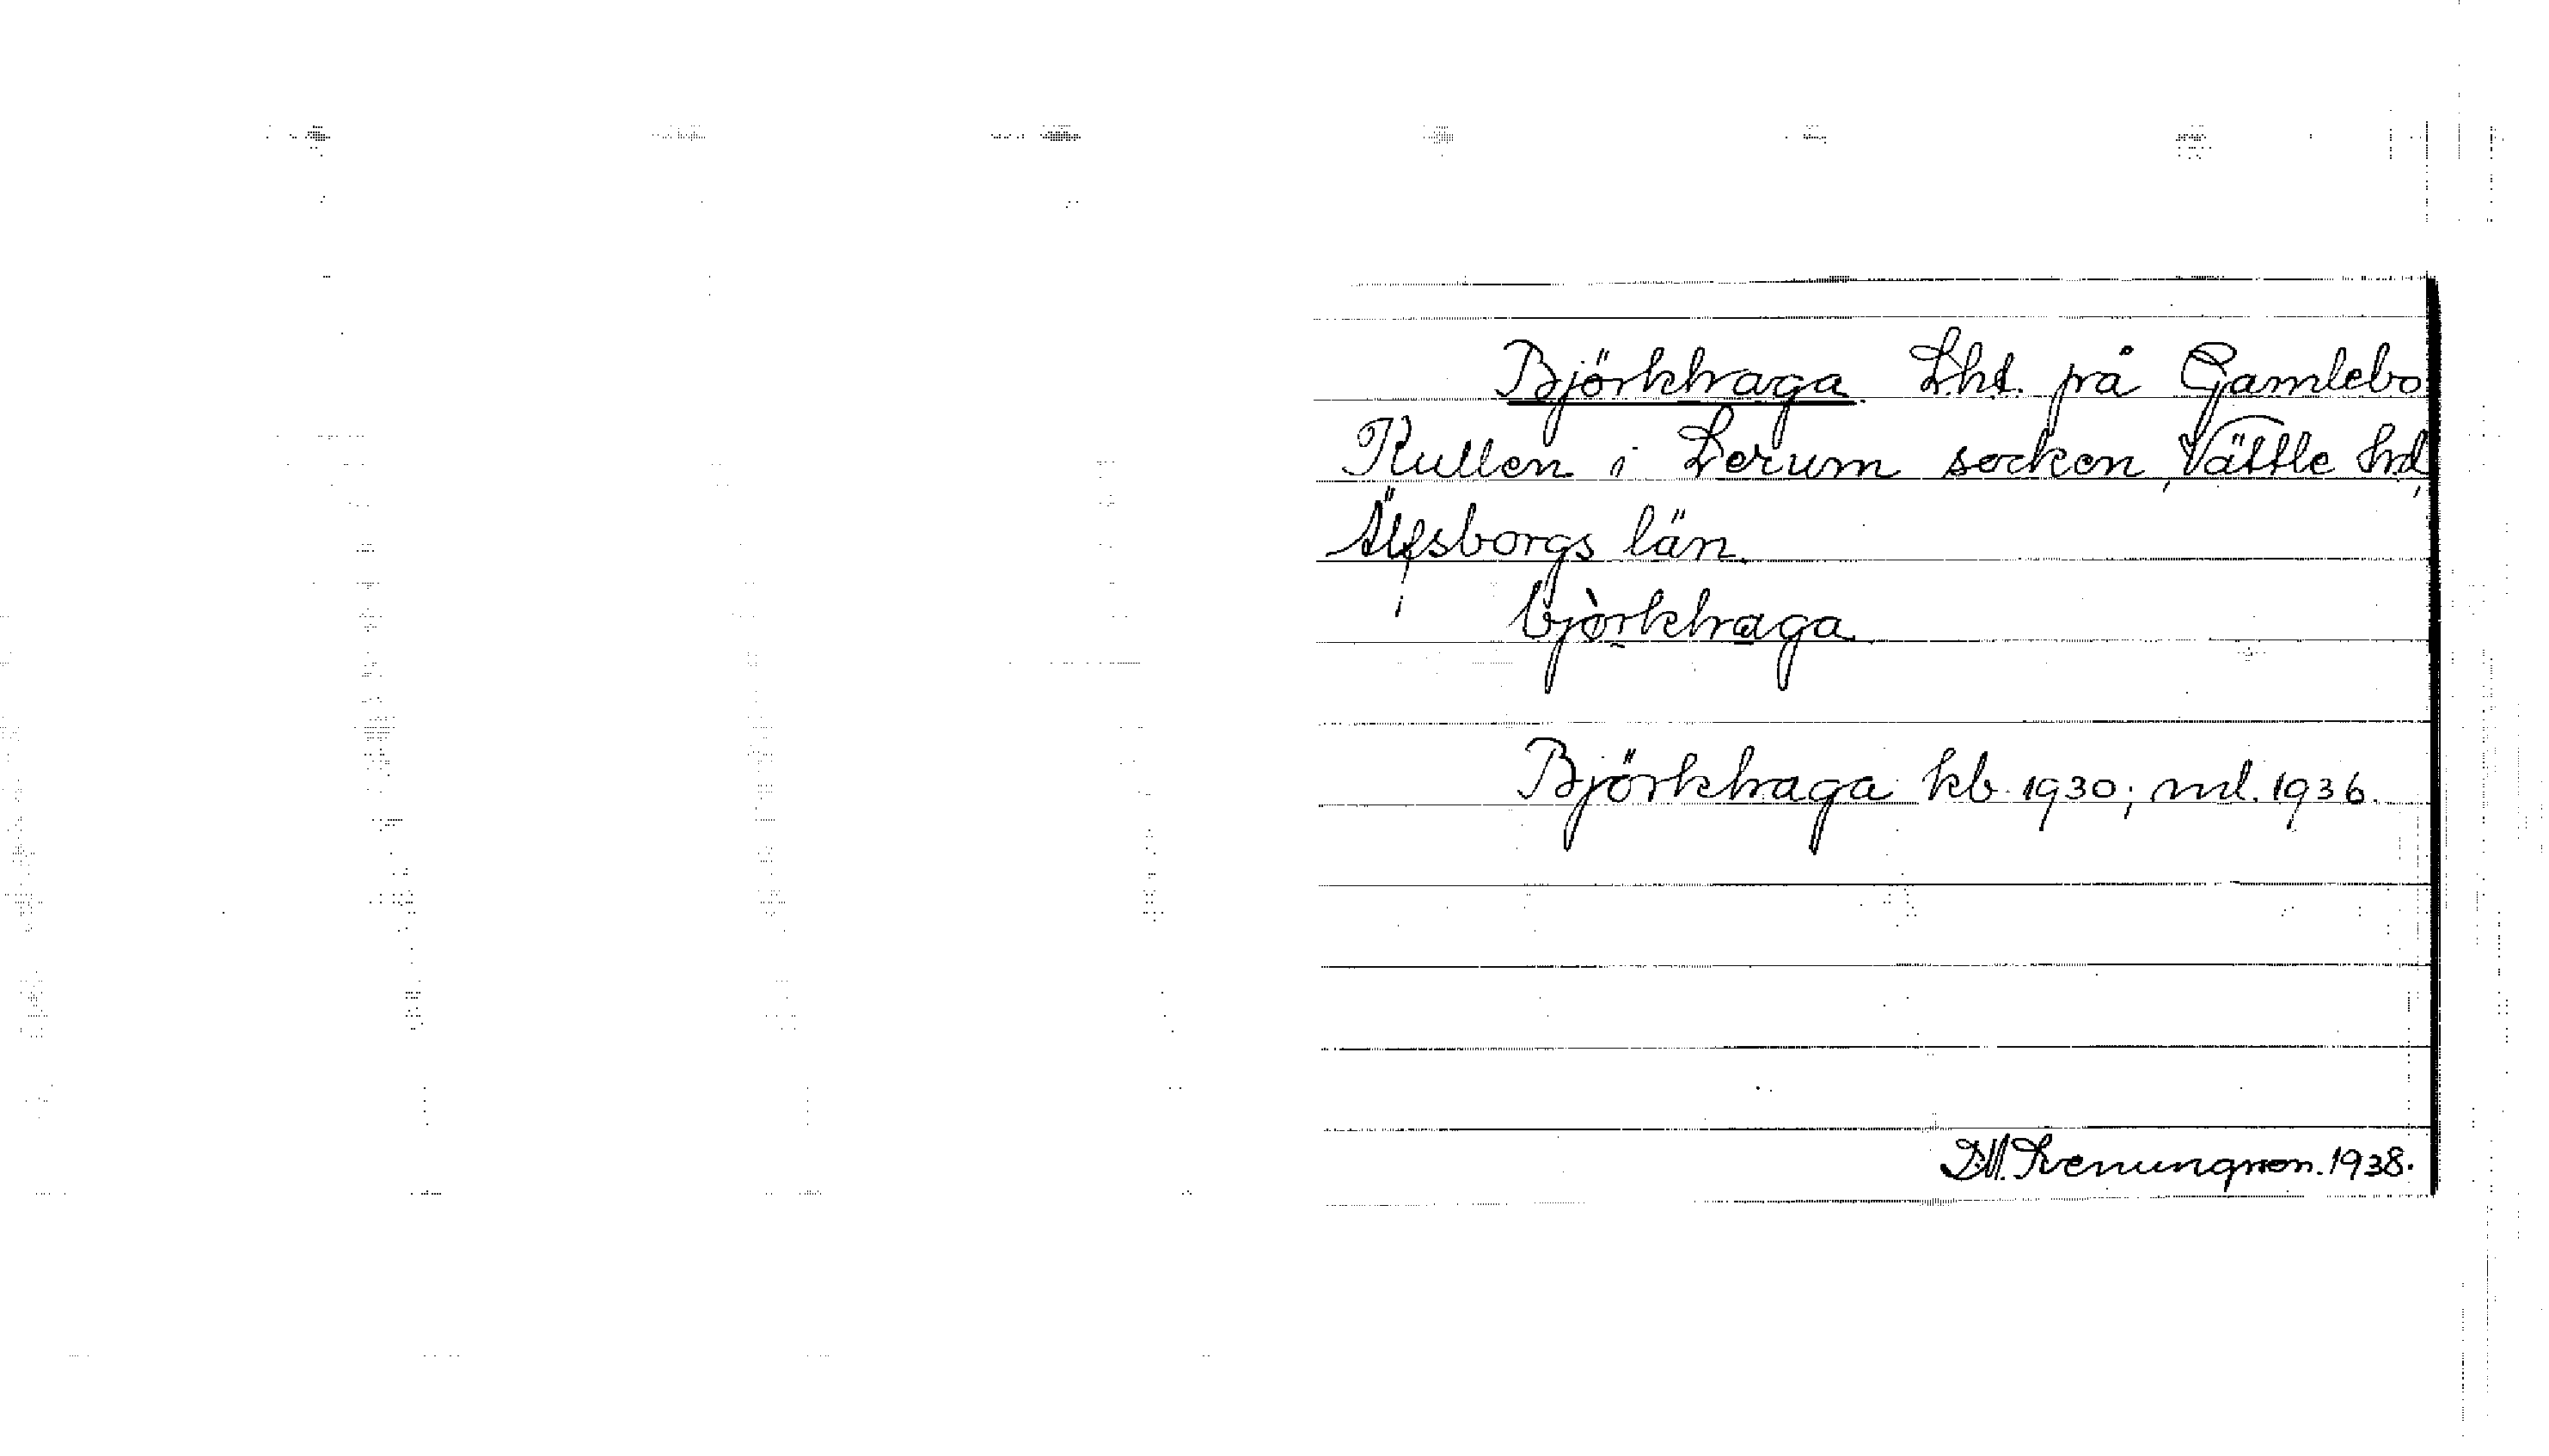 Björkhaga Lht. på Gamlebo
Kullen i Lerum socken, Vättle hd,
Älfsborgs län.
bjòrkhaga
Björkhaga kb. 1930; ml. 1936.
D.M. Svenungson. 1938.